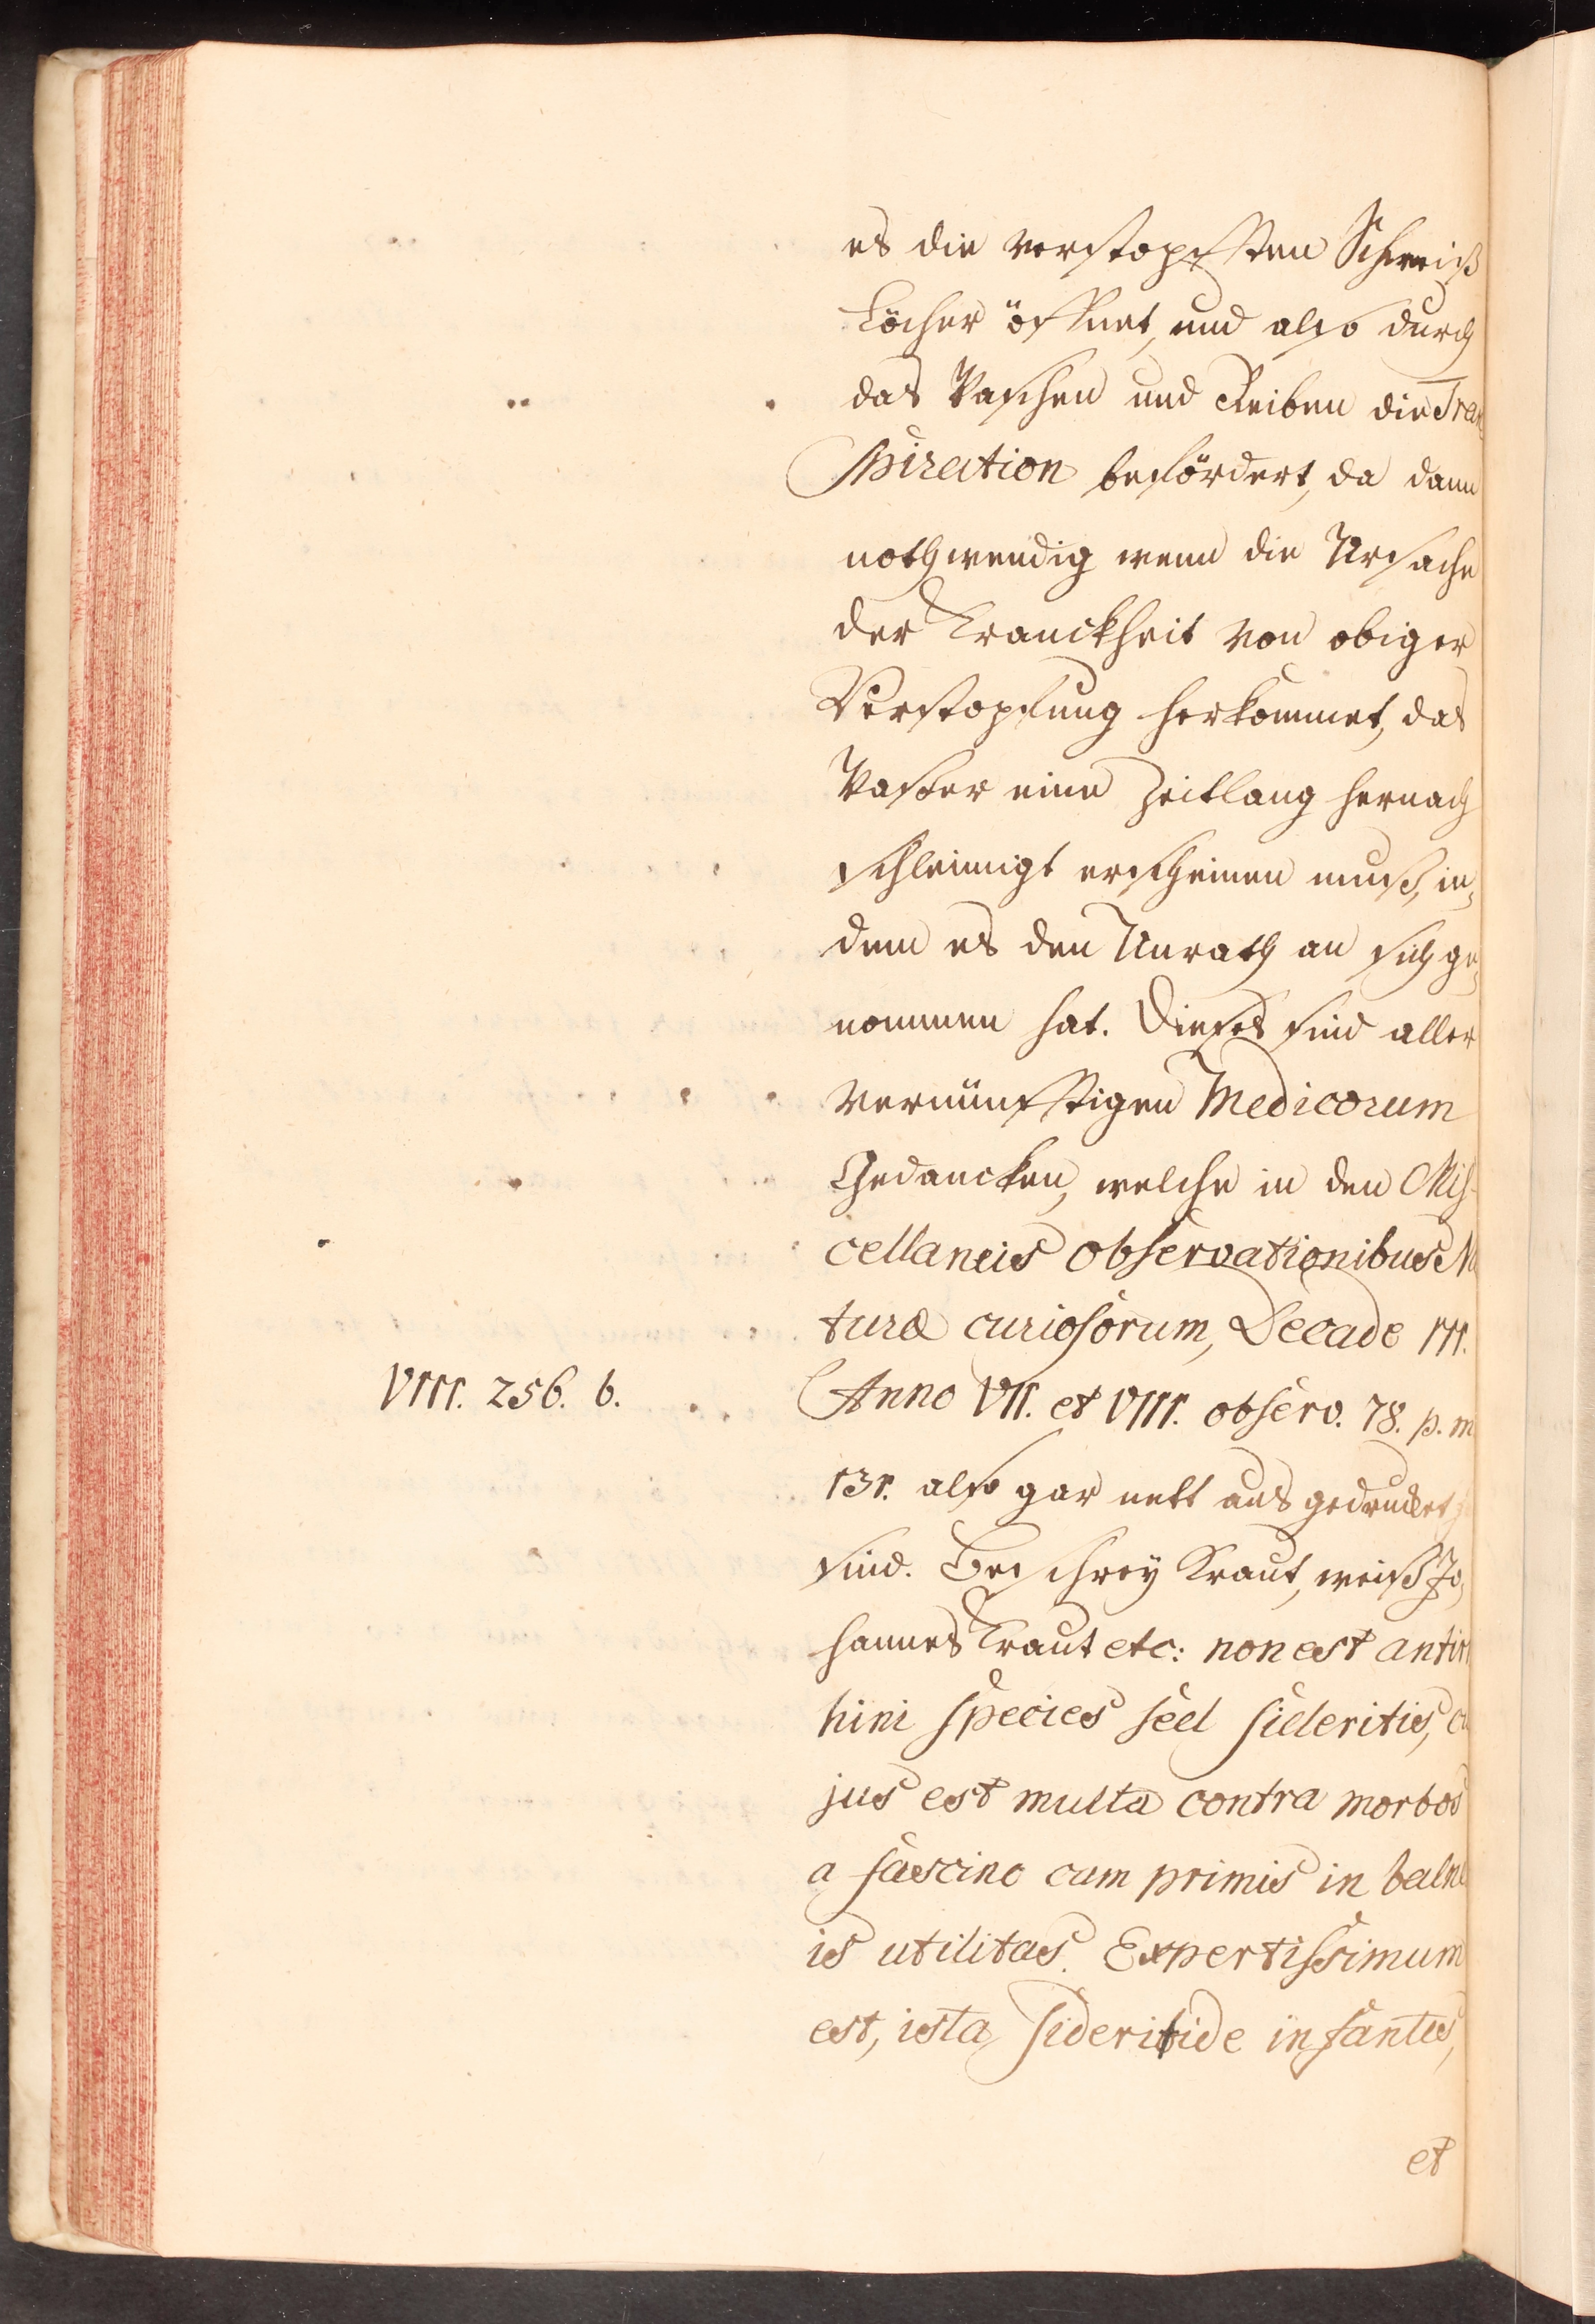 es die verstopfften Schweiß
Löcher öffnet, und also durch
das Waschen und Reiben die Tran
Spiration befördert, da dann
nothwendig wenn die Ursache
der Kranckheit von obiger
Verstopfung herkommet, das
Waßer eine Zeitlang hernach
schleimigt erscheinen muß, in,
dem es den Unrath an sich ge,
nommen hat. Dieses sind aller
vernünfftigen Medicorum
Gedancken, welche in den Mis-
cellaneis observationibus Na
turæ curiosorum, Decade III.
VIII. 256. b.
Anno VII. et VIII. observ. 78. p. m
131. also gar nett aus gedrucket
sind. Beschrey Kraut, weiß Jo,
hannes Kraut etc: non est antirr
hini species sed sideritis, cu
jus est multa contra morbos
a fascino cum primis in balne
is utilitas. Expertissimum
est, ista sideritide infantes,
et